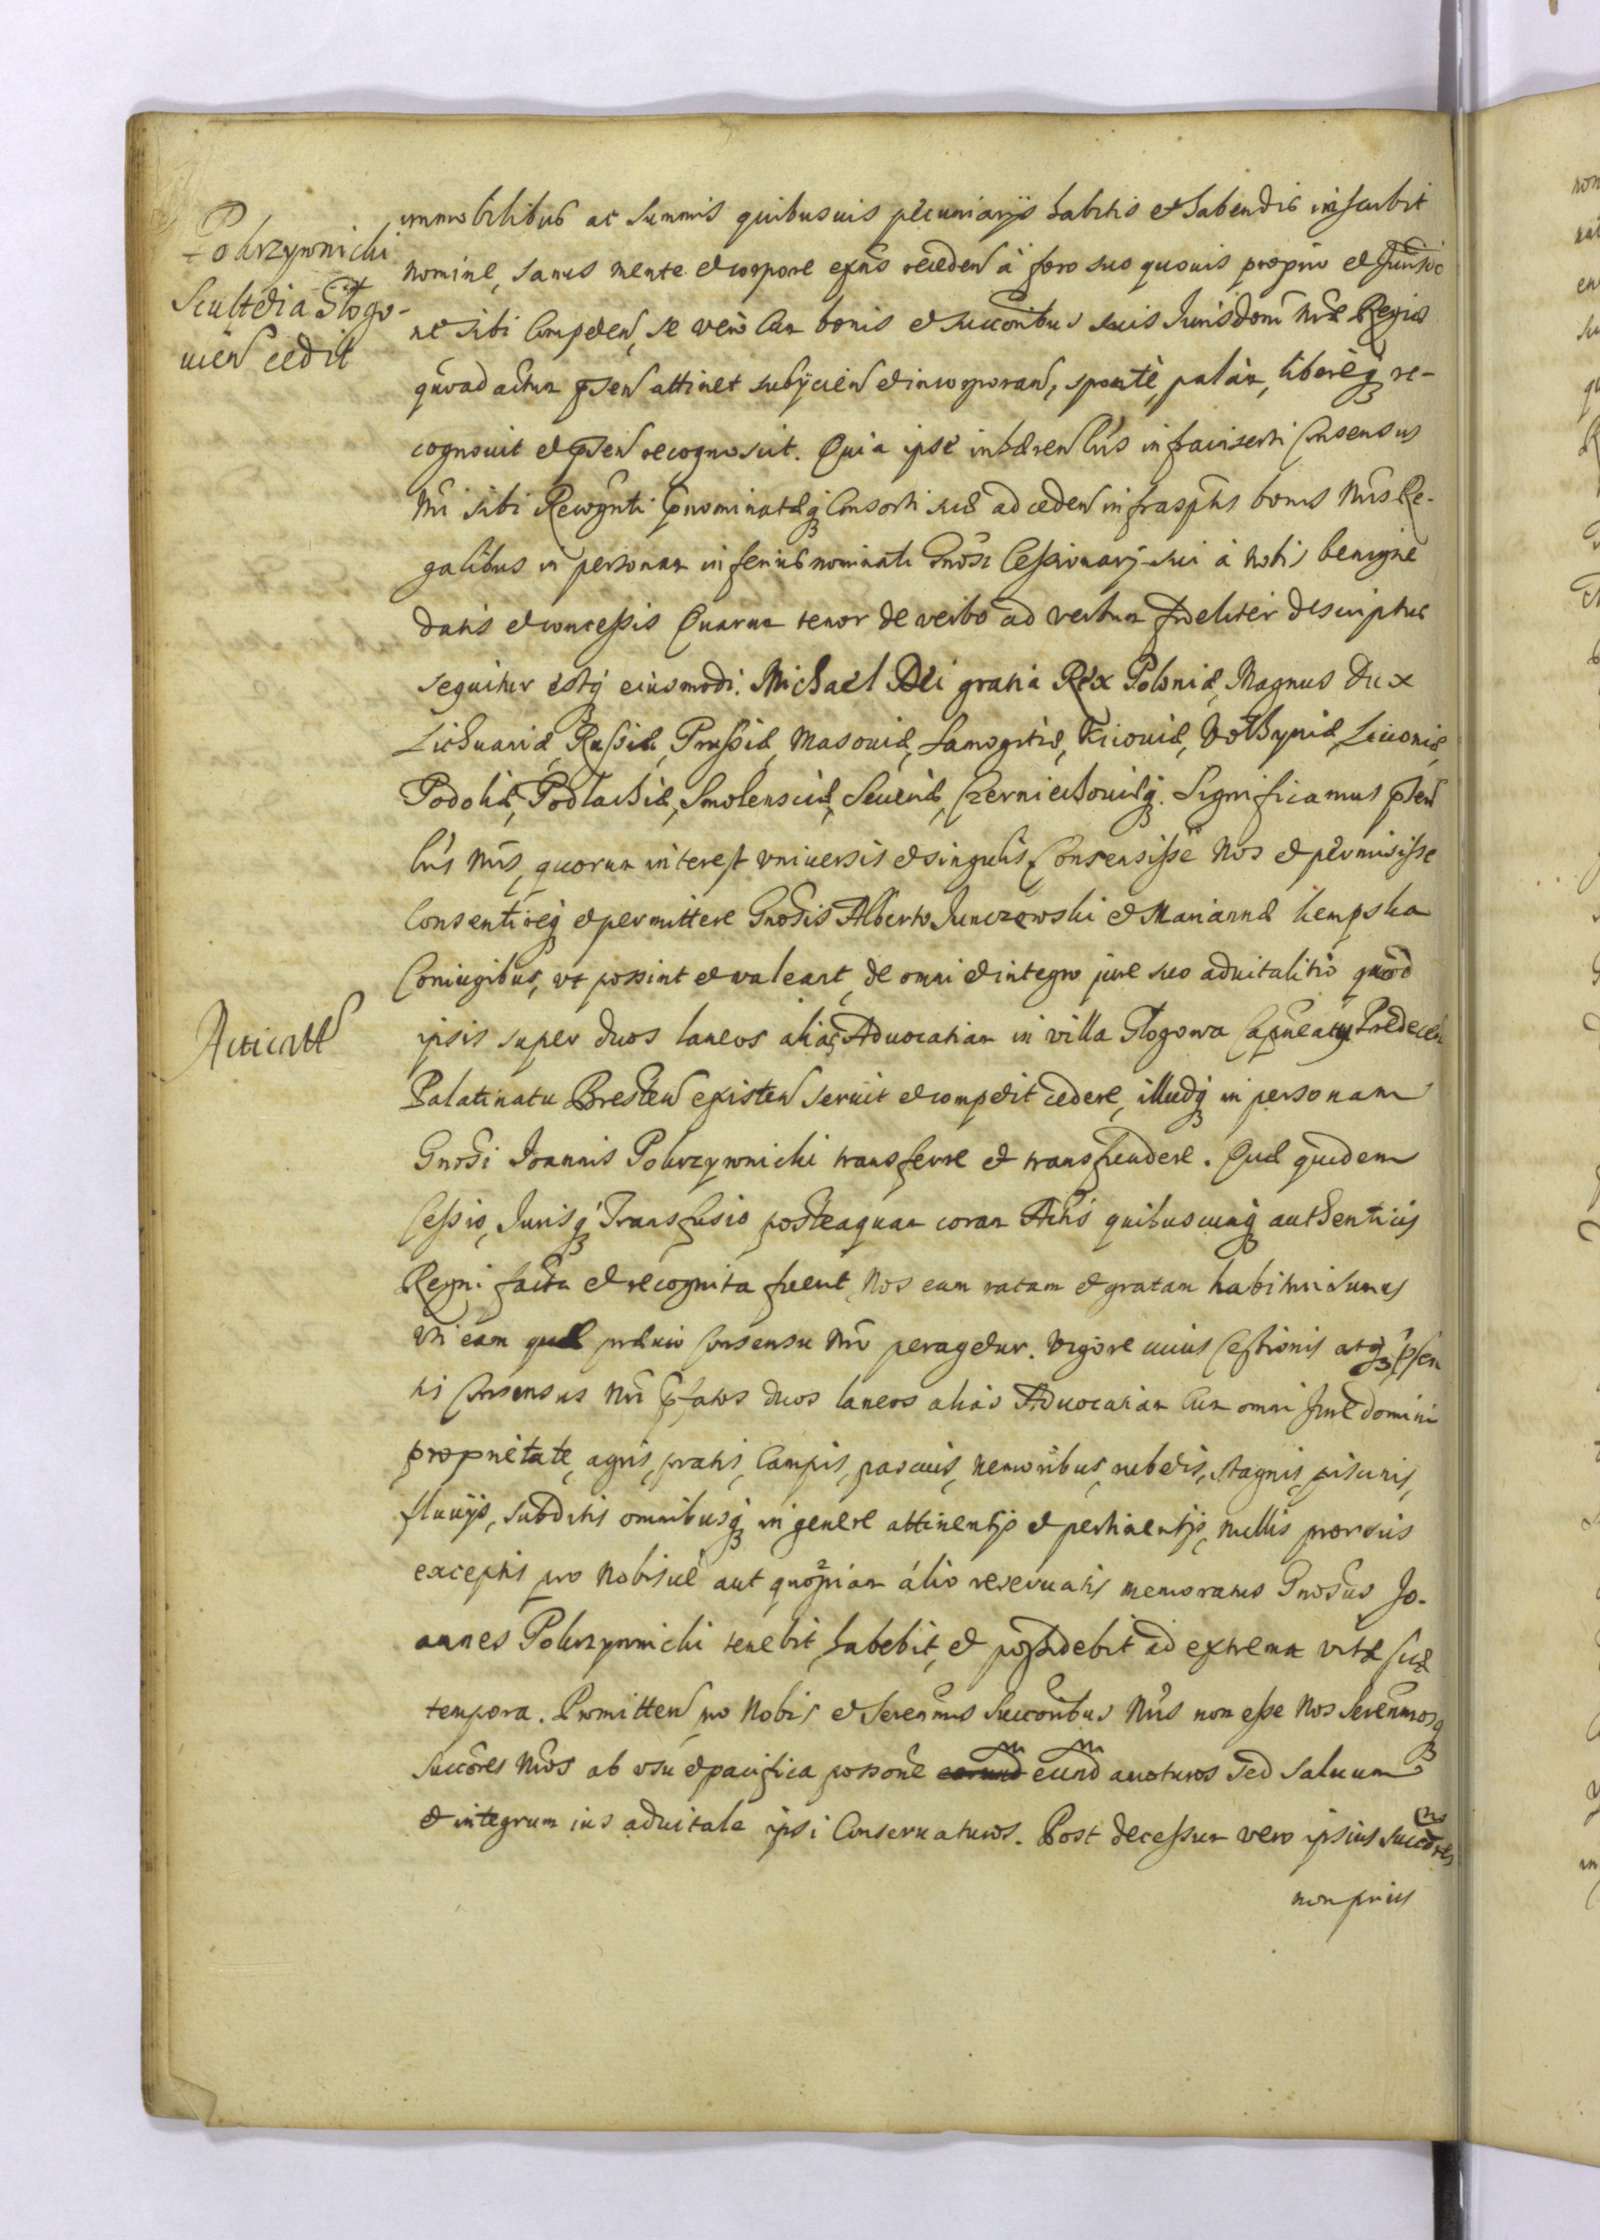 Pokrzywnicki
Scultetia Glogo-
uien cedit
immobilibus ac summis quibusuis pecuniarijs habitis et habendis inscribit
nomine, sanus mente et corpore exns receden à foro suo quouis proprio et Jurisdic
ne sibi Competen, se vero Cum bonis et successoribus suis Jurisdoni Nræ Regiæ
quoad actum psen attinet subijcien et incorporan, sponte, palàm, libereq re-
cognouit et psen recognoscit. Quia ipse inhæren Lris infrainserti Consensus
Nri sibi Recognti prænominatæq Consorti suæ ad ceden infrasptis bonis Nris Re-
galibus in personam inferius nominati Gnosi Cessionarij sui à Nobis benigne
datis et concessis Quarum tenor de verbo ad verbum fideliter descriptus
sequitur estq eiusmodi. Michael Dei gratia Rex Poloniæ, Magnus Dux
Lithuaniæ, Russiæ, Prussiæ, Masouiæ, Samogitiæ, Kiiouiæ, Volhyniæ, Liuoniæ,
Podoliæ, Podlachiæ, Smolensciæ, Seueriæ, Czerniechouiæq. Significamus psen
Lris Nris, quorum interest vniuersis et singulis, Consensisse Nos et permisisse
Consentireq et permittere Gnosis Alberto Junczowski et Mariannæ Kempska
Coniugibus, vt possint et valeant, de omni et integro jure suo aduitalitio quod
ipsis super duos laneos alias Aduocatiam in villa Glogowa Capneatus Prædecen
Acticatt
Palatinatu Bresten existen seruit et competit cedere, illudq in personam
Gnosi Joannis Pokrzywnicki transferre et transfundere. Quæ quidem
Cessio, Jurisq Transfusio posteaquam coram Actis quibuscunq authenticis
Regni facta et recognita fuerit, Nos eam ratam et gratam habituri sumus
vti eam quæ præuio Consensu Nro peragetur. Vigore cuius Cessionis atq psen
tis Consensus Nri pfatos duos laneos alias Aduocatiam Cum omni Jure domini
proprietate, agris, pratis, Campis, pascuis, nemoribus, rubetis, stagnis, piscinis,
fluuijs, subditis omnibusq in genere attinentijs et pertinentijs, nullis prorsus
exceptis pro Nobisue aut quopiam alio reseruatis memoratus Gnosus Jo-
annes Pokrzywnicki tenebit, habebit, et possidebit ad extrema vitæ suæ
tempora. Promitten pro Nobis et Serenmis Succoribus Nris non esse Nos Serenmosq
succores Nros ab vsu et pacifica possone eorund eund amoturos sed saluum
et integrum ius aduitale ipsi Conseruaturos. Post decessum vero ipsius succores
non prius